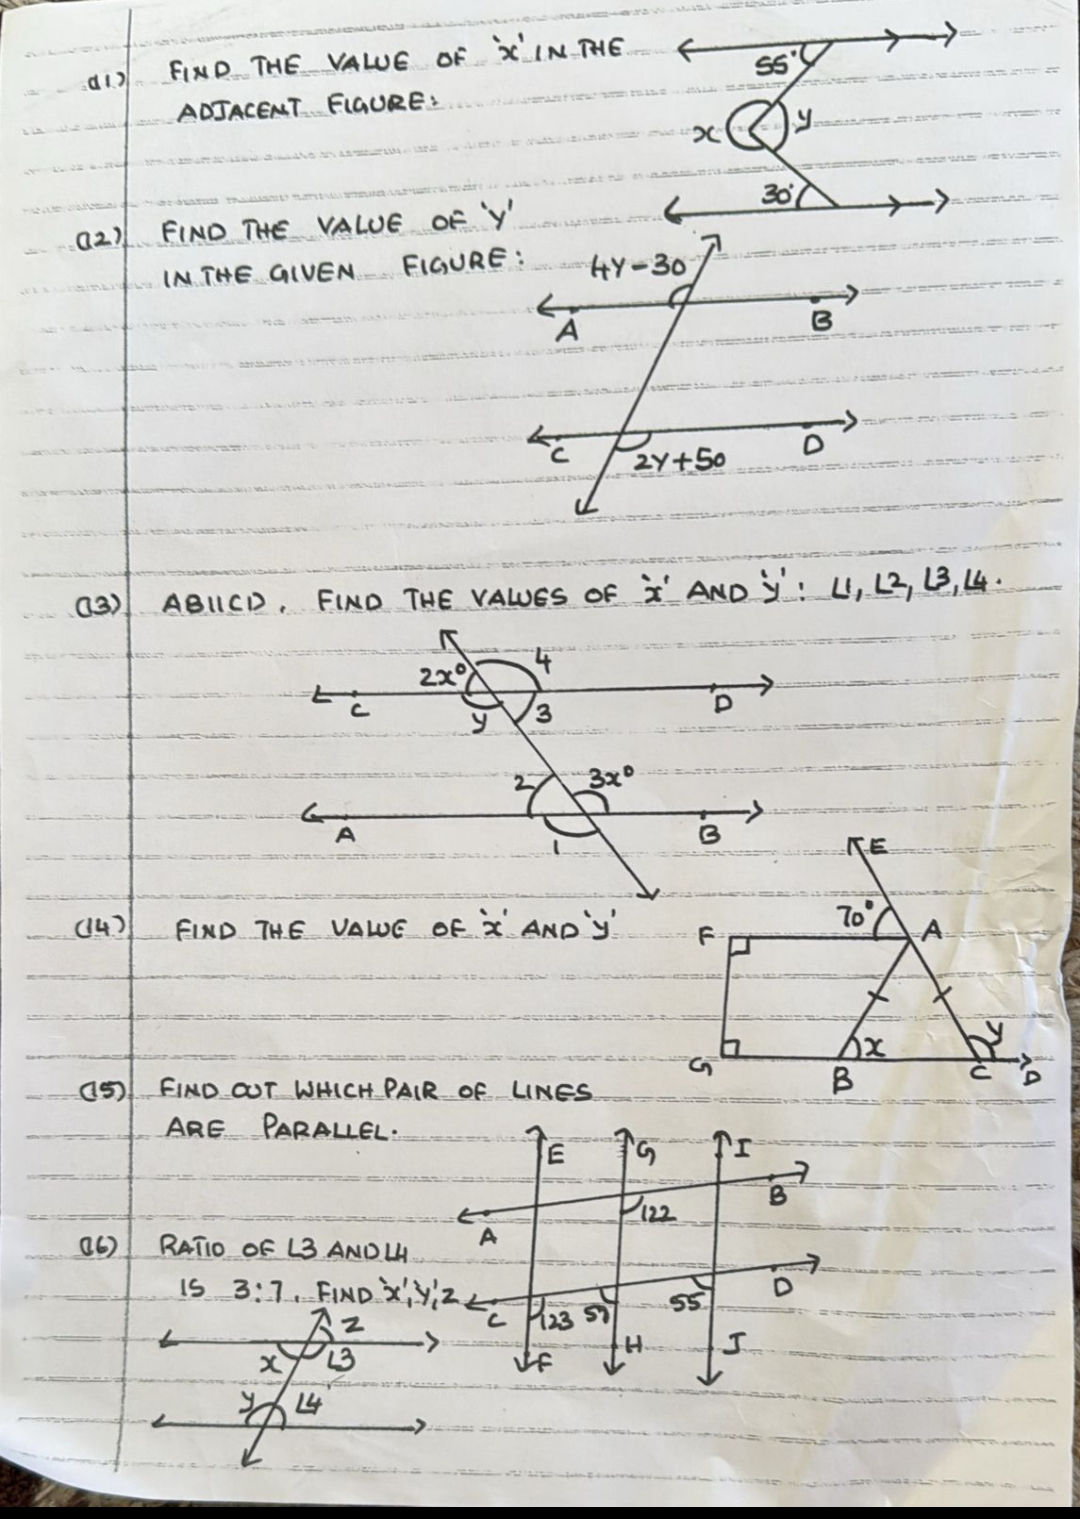 Q11) FIND THE VALUE OF 'x' IN THE
ADJACENT FIGURE:
55°
x y
30°
Q12) FIND THE VALUE OF 'Y'
IN THE GIVEN FIGURE:
4Y-30
A B
C D
2Y+50
Q13) AB||CD, FIND THE VALUES OF 'x' AND 'y': ∠1, ∠2, ∠3, ∠4.
2x° 4
C D
y 3
2 3x°
A B
1
E
Q14) FIND THE VALUE OF 'x' AND 'y'
70°
F A
x y
G B C D
Q15) FIND OUT WHICH PAIR OF LINES
ARE PARALLEL.
E G I
B
122
A
Q16) RATIO OF ∠3 AND ∠4
IS 3:7. FIND 'x','y',z
D
C 123 57 55°
F H J
z
x ∠3
y ∠4